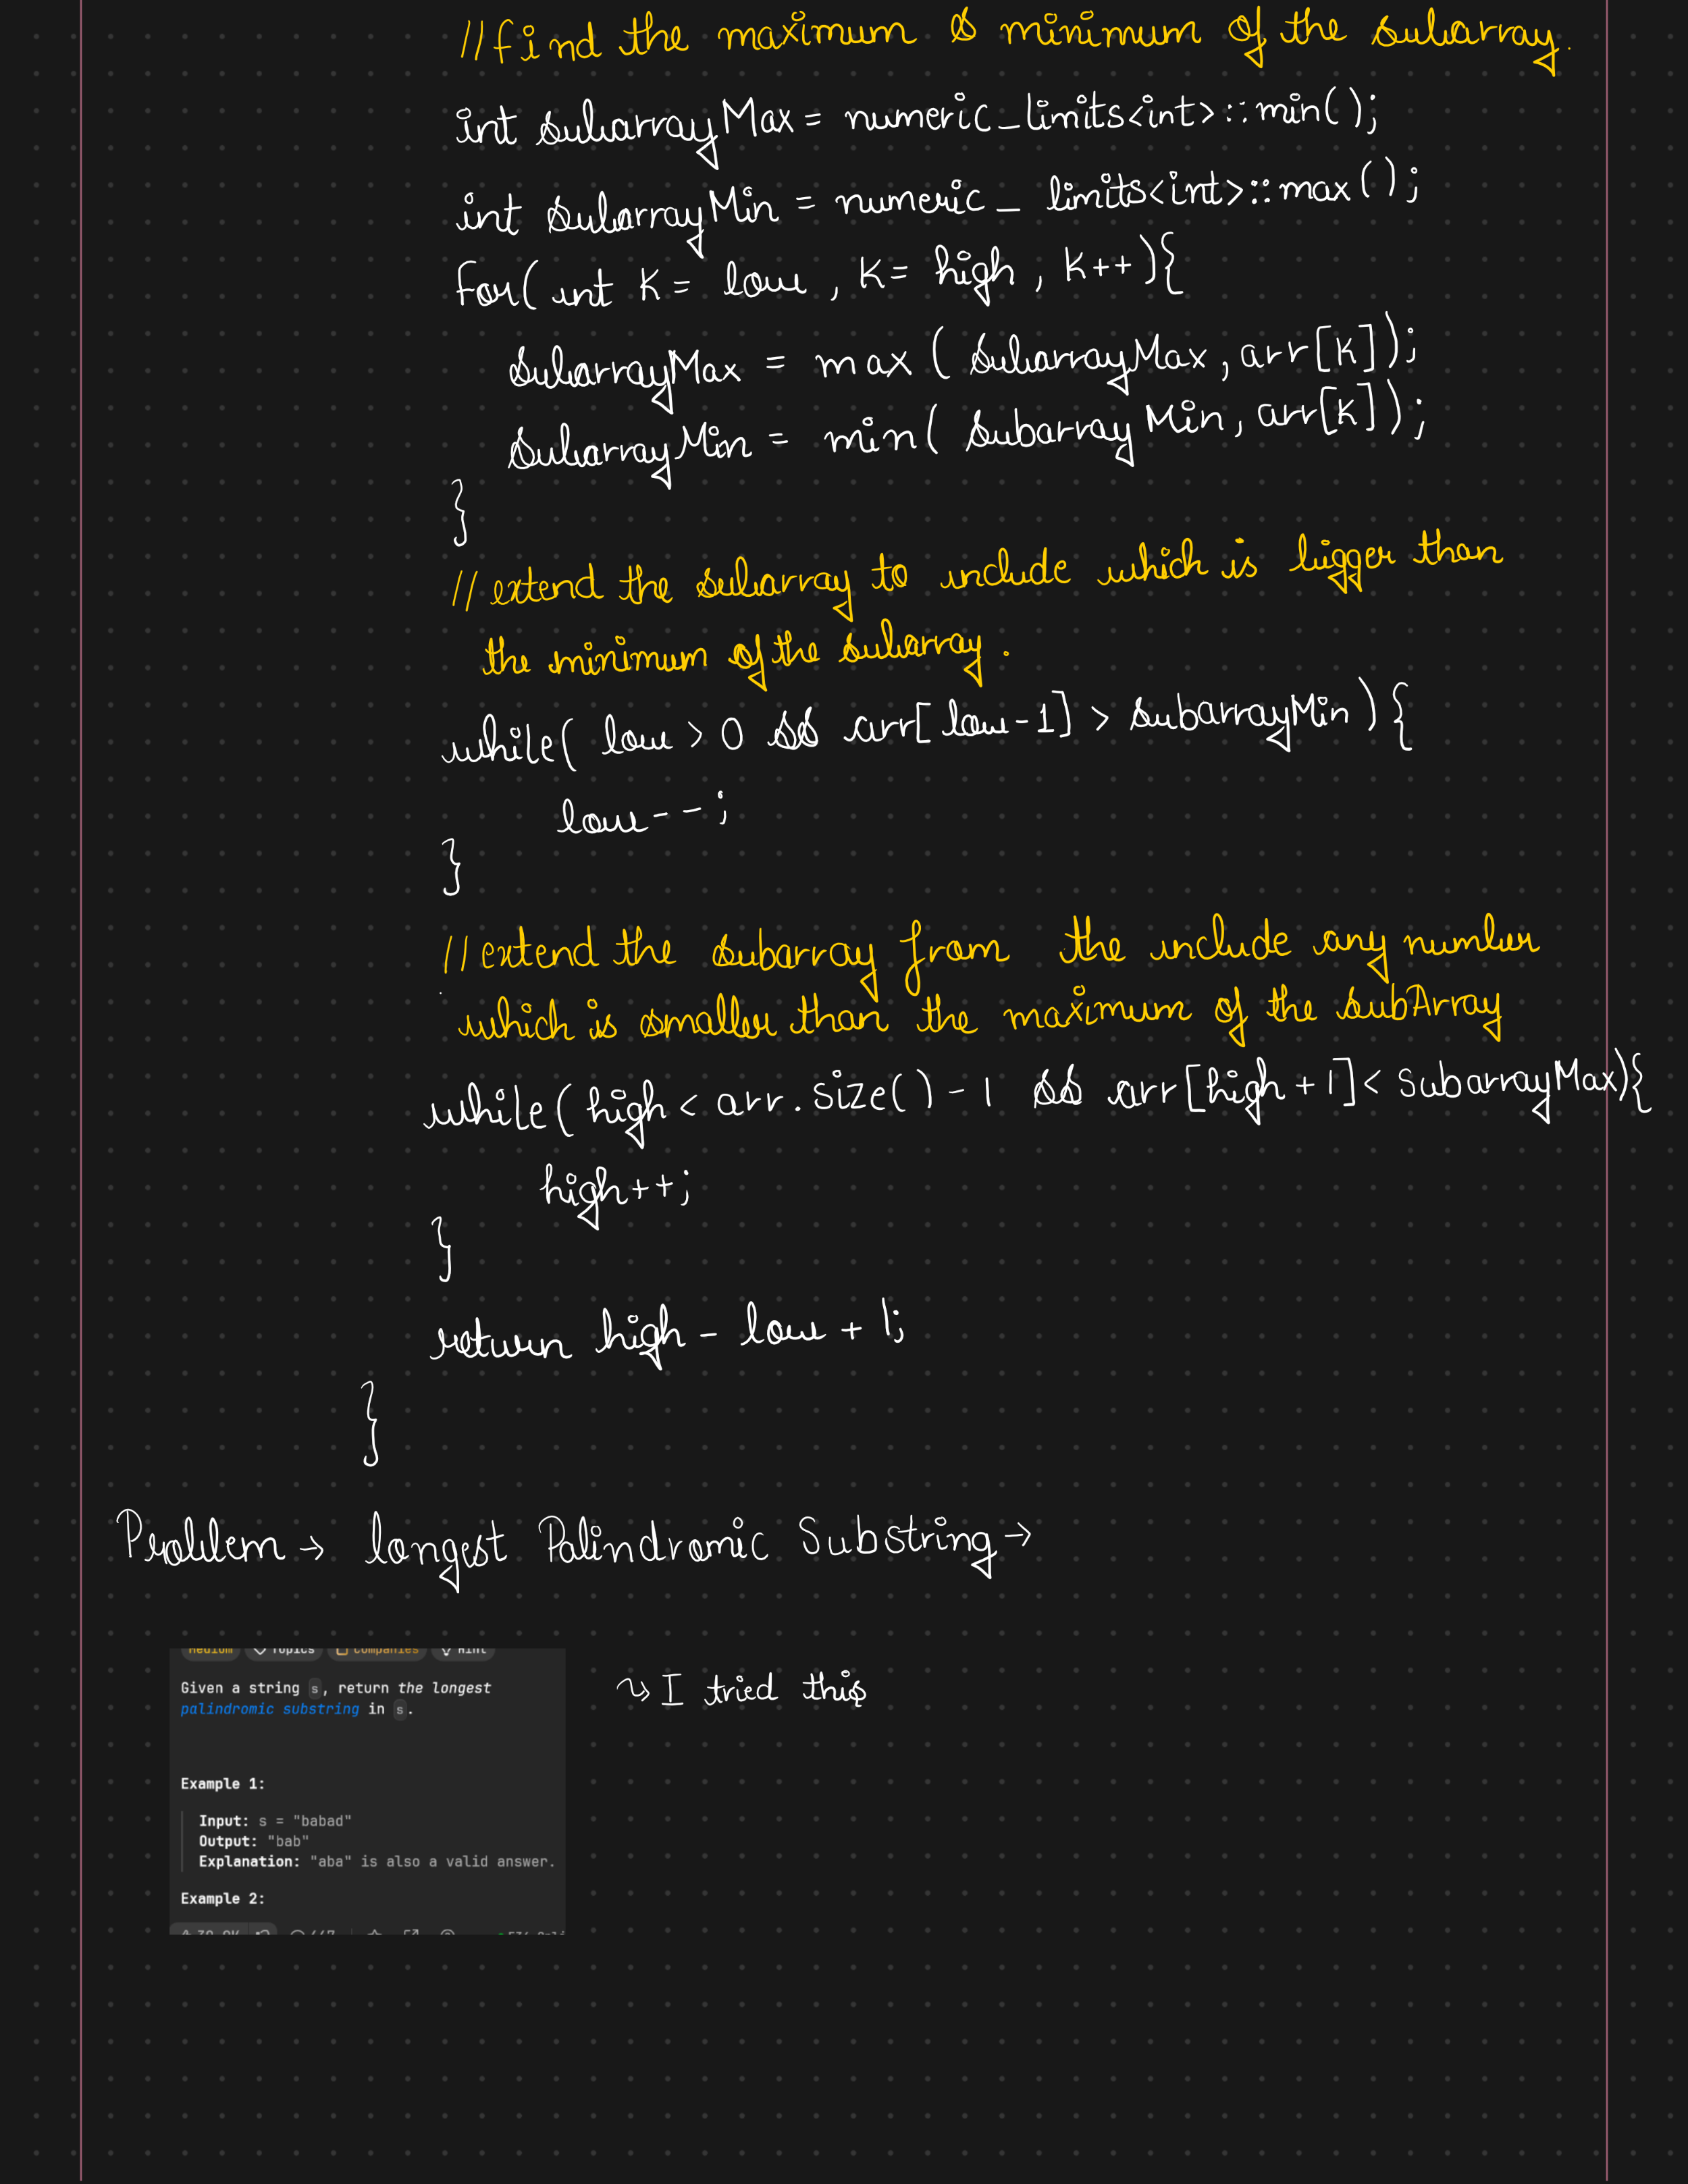 //find the maximum & minimum of the subarray.
int subarrayMax = numeric_limits<int>::min();
int subarrayMin = numeric_limits<int>::max();
for( int K = low , K = high , K++){
subarrayMax = max ( subarrayMax, arr[K]);
subarrayMin = min( subarrayMin, arr[K]);
}
// extend the subarray to include which is bigger than
the minimum of the subarray.
while( low > 0 && arr[low-1] > subarrayMin ) {
low--;
}
//extend the subarray from the include any number
which is smaller than the maximum of the subArray
while( high < arr.size() - 1 && arr[high + 1] < SubarrayMax){
high++;
}
return high - low + 1;
}
Problem → longest Palindromic Substring →
Medium Topics Companies Hint
Given a string s, return the longest
palindromic substring in s.
I tried this
Example 1:
Input: s = "babad"
Output: "bab"
Explanation: "aba" is also a valid answer.
Example 2: